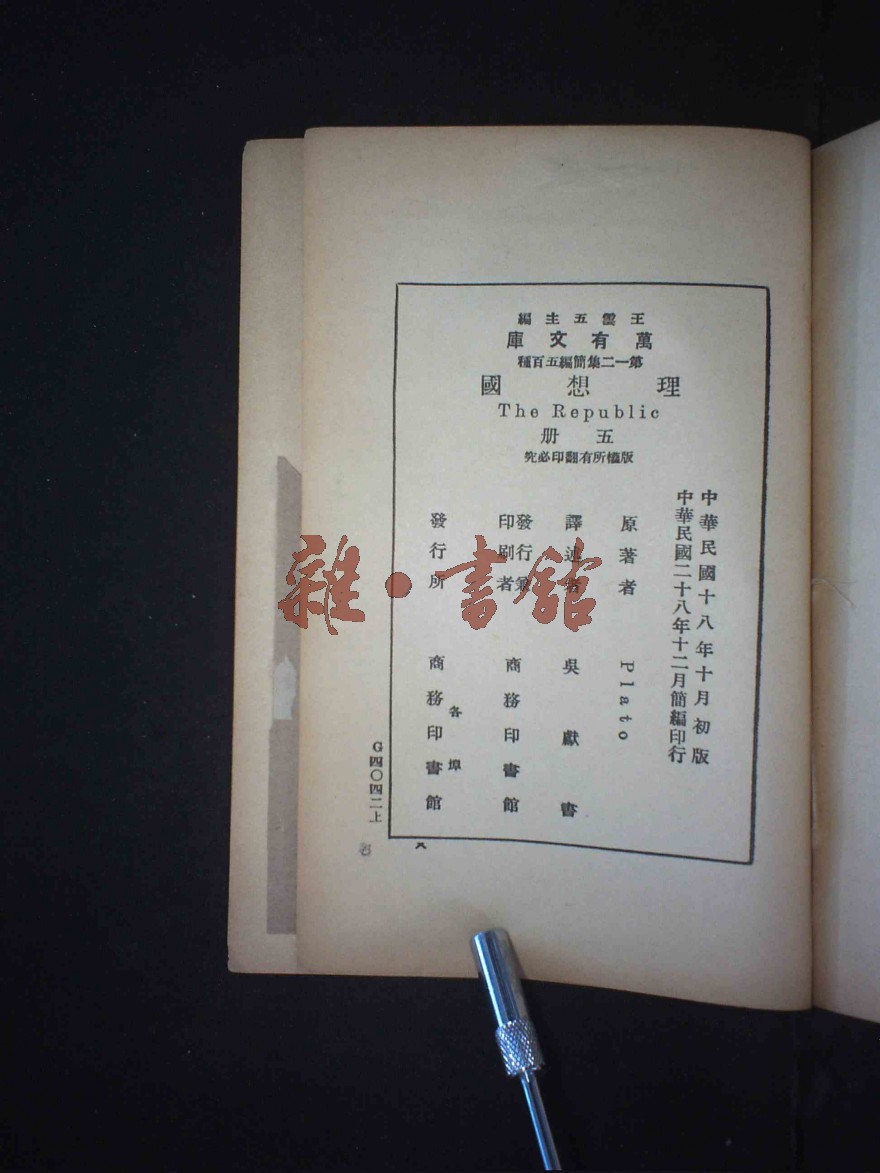 王雲五主編
萬有文庫
第一二集簡編五百種
理想國
The Republic
五册
版權所有翻印必究
中華民國十八年十月初版
中華民國二十八年十二月簡編印行
原著者 Plato
譯述者 吳獻書
發行兼印刷者 商務印書館
發行所 各埠 商務印書館
G四〇四二上
雜·書館